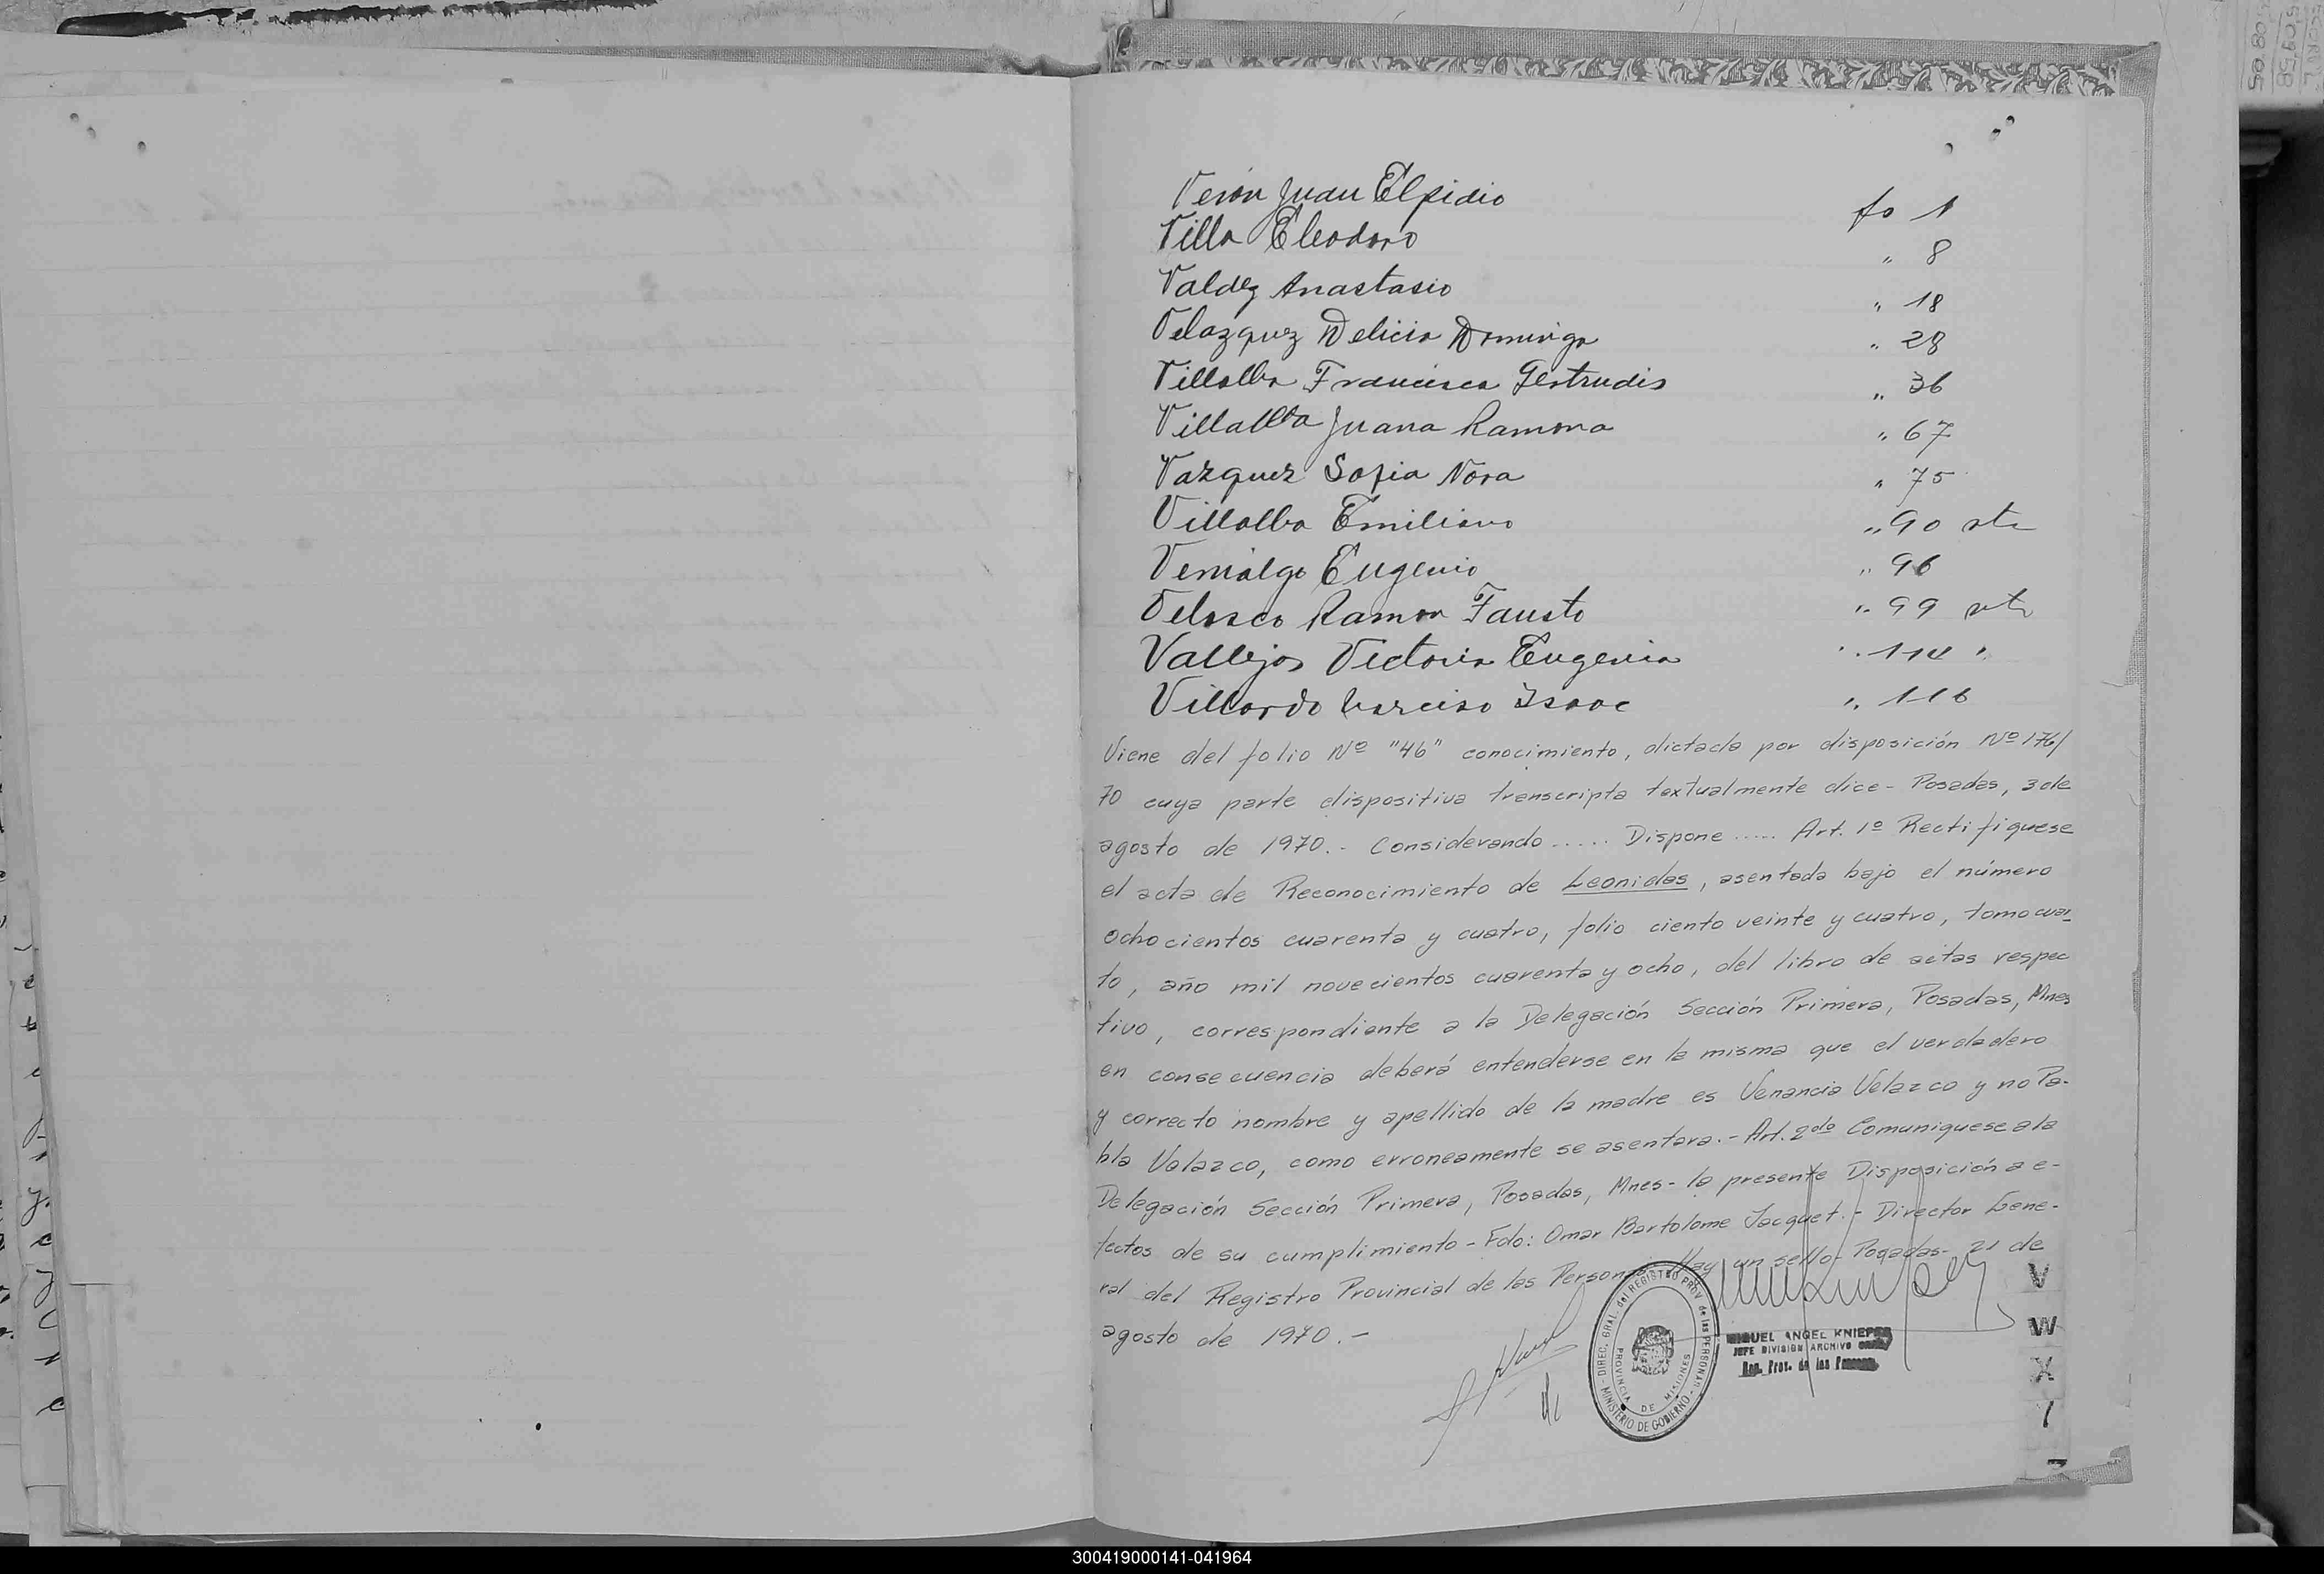 Veron Juan Elpidio fo 1
Villa Eleodoro " 8
Valdez Anastasio " 18
Velazquez Delicia Dominga " 28
Villalba Francisca Gertrudis " 36
Villalba Juana Ramona " 67
Vazquez Sofia Nora " 75
Villalba Emiliano " 90 vto
Venialgo Eugenio " 96
Velasco Ramon Fausto " 99 vto
Vallejos Victoria Eugenia " 114 "
Villordo Narciso Isaac " 116
Viene del folio Nº "46" conocimiento, dictada por disposición Nº 176/
70 cuya parte dispositiva transcripta textualmente dice - Posadas, 3 de
agosto de 1970.- Considerando ..... Dispone ..... Art. 1º Rectifiquese
el acta de Reconocimiento de Leonidas, asentada bajo el número
ochocientos cuarenta y cuatro, folio ciento veinte y cuatro, tomo cuar_
to, año mil novecientos cuarenta y ocho, del libro de actas respec
tivo, correspondiente a la Delegación Sección Primera, Posadas, Mnes
en consecuencia deberá entenderse en la misma que el verdadero
y correcto nombre y apellido de la madre es Venancia Velazco y no Pa-
bla Valazco, como erroneamente se asentara.- Art. 2do Comuniquese a la
Delegación Sección Primera, Posadas, Mnes - la presente Disposición a e-
fectos de su cumplimiento - Fdo: Omar Bartolome Jacquet.- Director Gene-
ral del Registro Provincial de las Personas - Hay un sello - Posadas - 21 de
agosto de 1970.-
DIREC. GRAL. del REGISTRO PROV. de las PERSONAS
PROVINCIA DE MISIONES
MINISTERIO DE GOBIERNO
MIGUEL ANGEL KNIEPER
JEFE DIVISION ARCHIVO
Reg. Prov. de las Personas
V
W
X
300419000141-041964